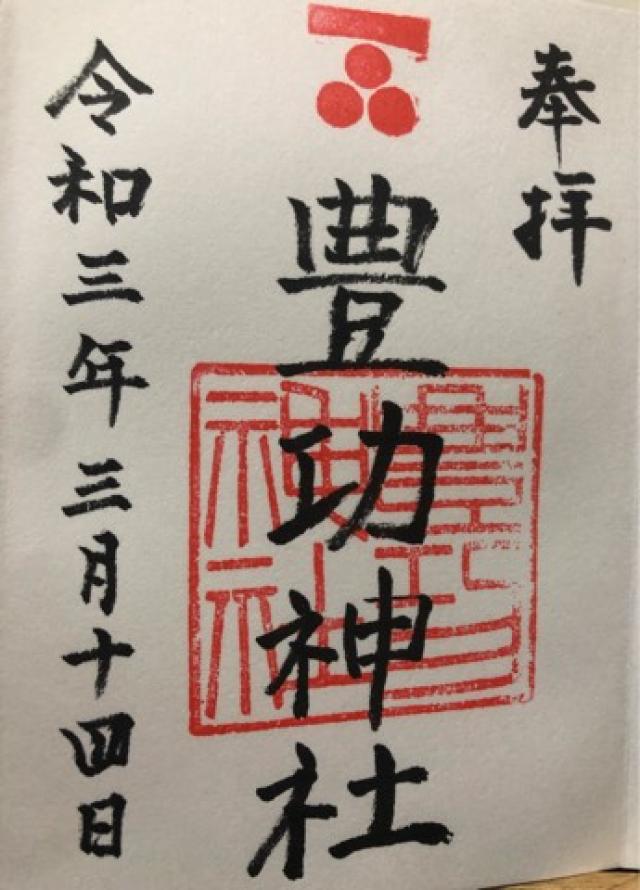 奉拝
豊功神社
令和三年三月十四日
豊功神社